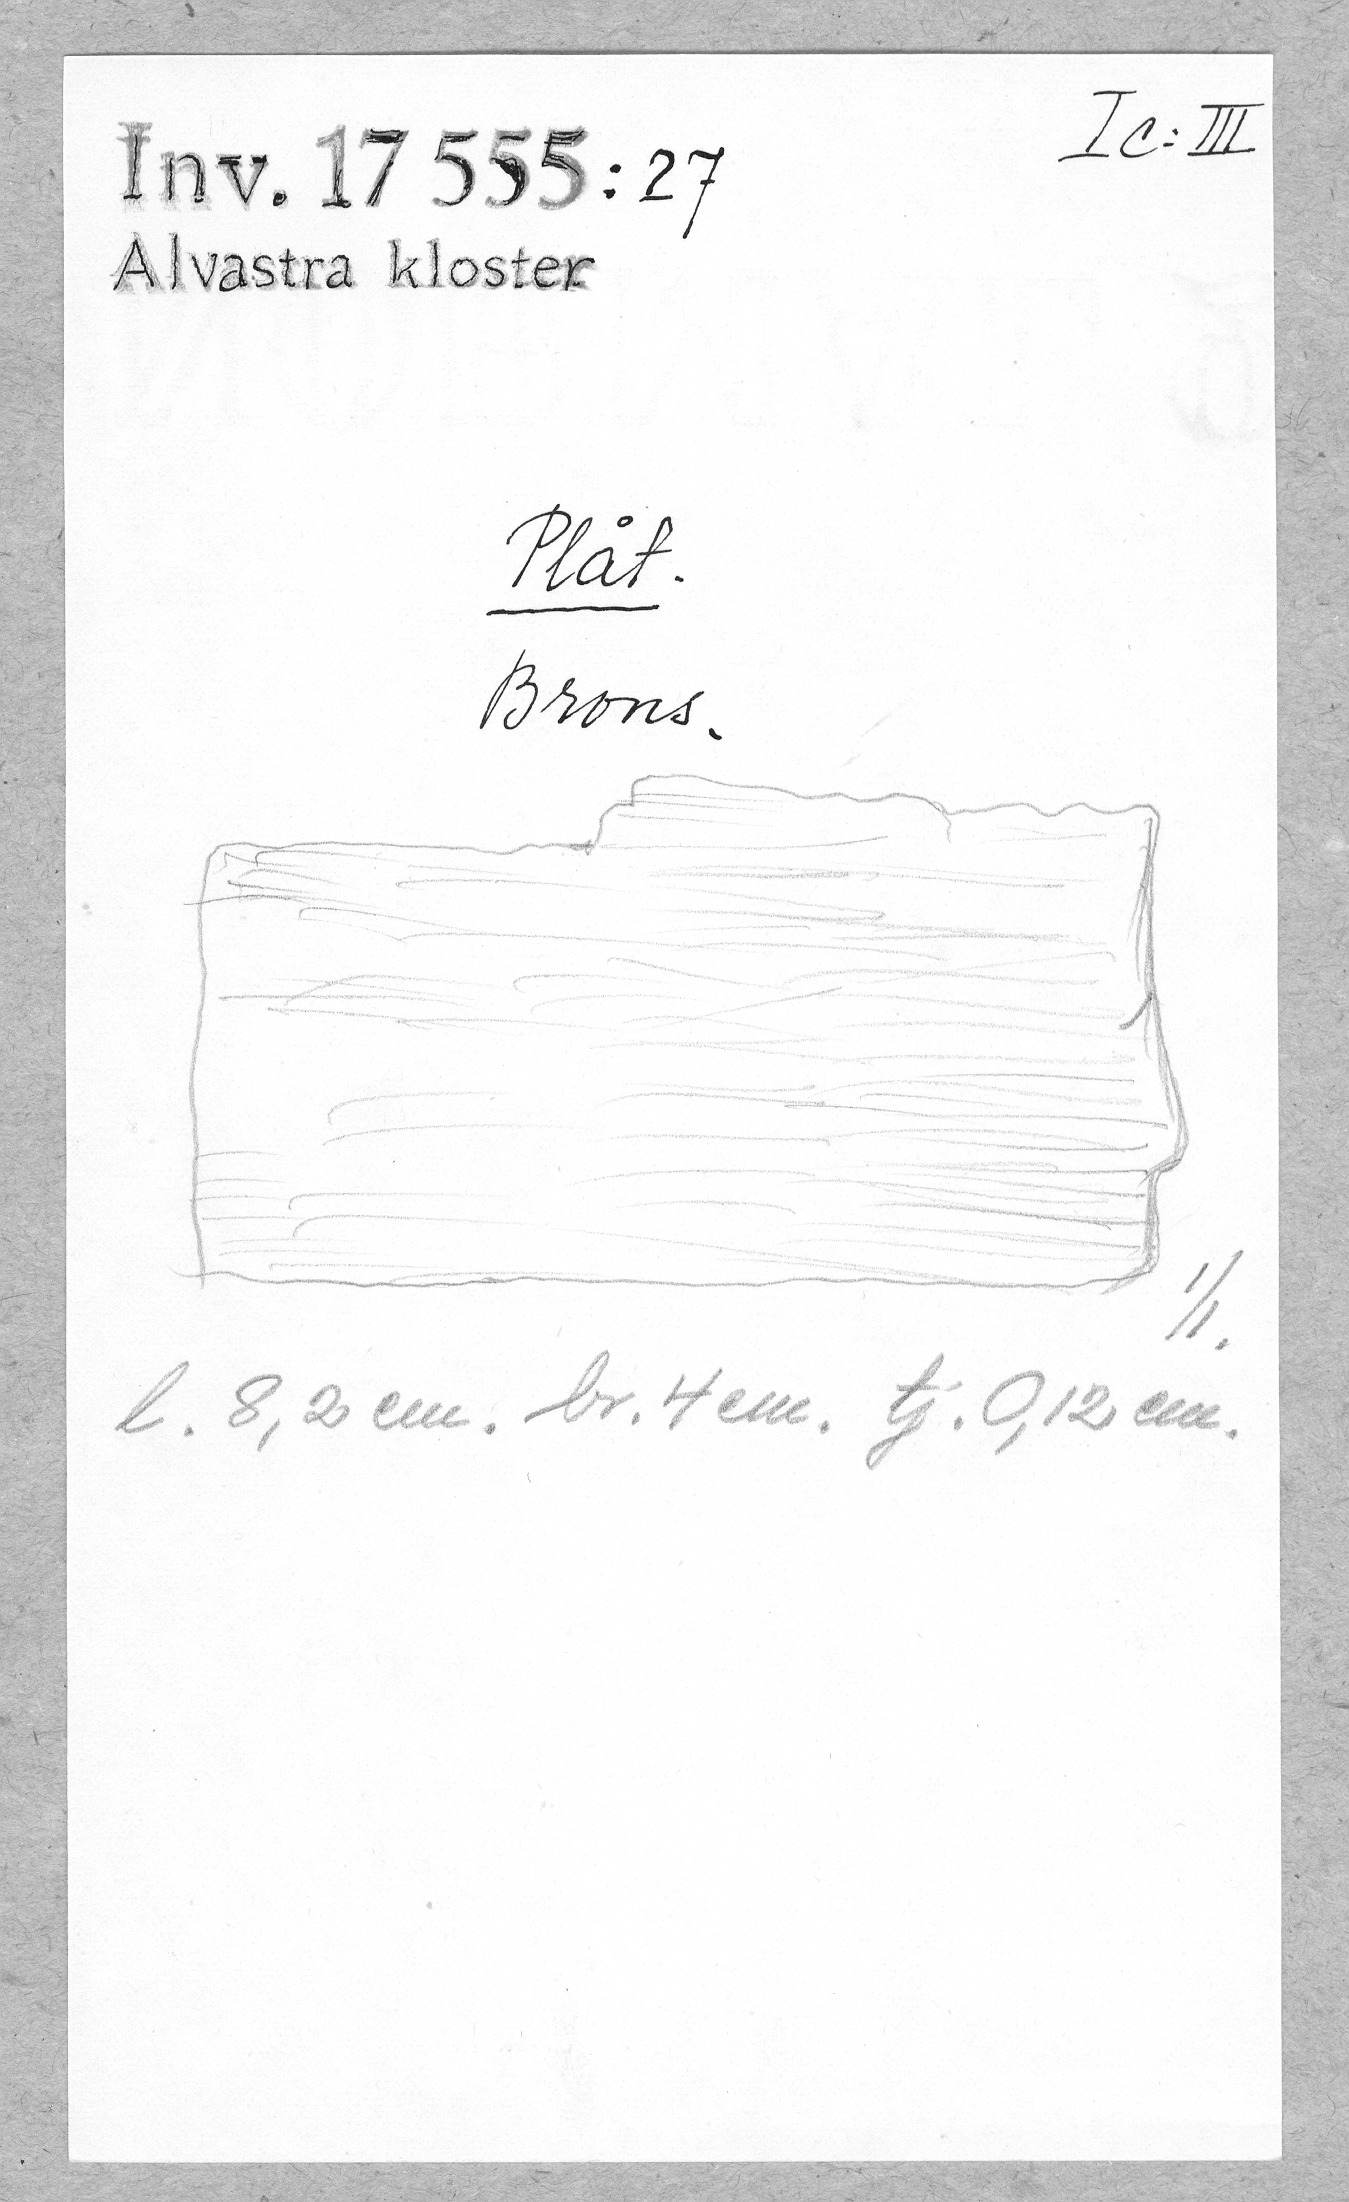 Inv. 17 555:27
Ic:III
Alvastra kloster
Plåt.
Brons.
1/1.
l. 8,2 cm. br. 4 cm. tj. 0,12 cm.